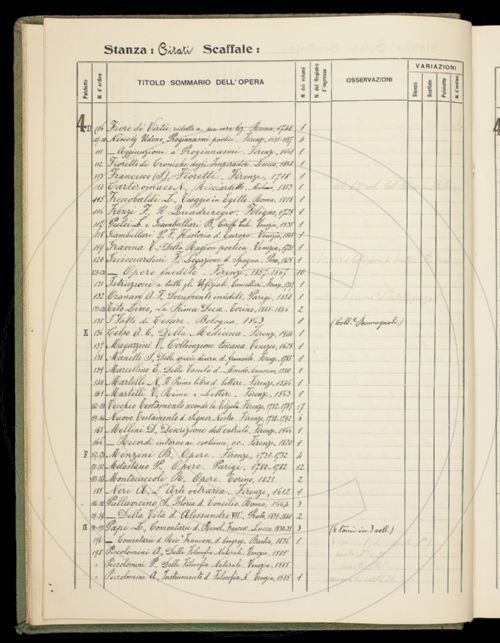 Stanza: Citati Scaffale:
VARIAZIONI
Palchetto
N. d'ordine
TITOLO SOMMARIO DELL'OPERA
N. dei volumi
N. del Registro d'ingresso
OSSERVAZIONI
Stanza
Scaffale
Palchetto
N. d'ordine
4 D 106 Fiore di Virtù ridotto a sua vera Roma, 1740 1
Nisiely Udeno, Proginnasmi poetici. Firenze, 4
— Aggiunzione a' Proginnasmi. Firenze, 1
112 Fioretti di Croniche degli Imperadori. Lucca, 1858 1
113 Francesco (S.), Fioretti. Firenze, 1718 1
Carteromaco N., Ricciardetto. 1
115 Frescobaldi L., Viaggio in Egitto. Roma, 1818 1
116 Frezzi F., Il Quadriregio. Foligno, 1725 1
Giambullari B., Ciriffo Calv. Venezia, 1535 1
118 Giambullari P. F., Historia d. Europa. Venezia, 1566 1
Gravina V., Della Ragion poetica. Venezia, 1731 1
Guicciardini F., Legazione di Spagna. Pisa, 1825 1
— Opere inedite. Firenze, 1857-1867 10
131 Istruzione a tutti gli Uffiziali 1
132 Ozanam A. F., Documents inédits. Parigi, 1850 1
Tito Livio, La Prima Deca. Torino, 1845-1846 2
135 I Fatti di Cesare. Bologna, 1863 1 (Coll.e Romagnoli)
E 136 Celso A. C., Della Medicina. Firenze, 1
137 Magazzini V., Coltivazione toscana. Venezia, 1625 1
138 Manetti S., Delle specie diverse di frumento. Firenze, 1765 1
139 Marcellino E., Della Vanità del Mondo. 1
140 Martelli N., Il Primo libro d. lettere. Firenze, 1546 1
141 Martelli V., Rime e Lettere. Firenze, 1563 1
Vecchio Testamento secondo la Volgata. Firenze, 1782-1787 17
Nuovo Testamento d. Signor Nostro. Firenze, 6
165 Mellini D., Descrizione dell'entrata. Firenze, 1566 1
166 — Ricordi intorno ai costumi, ec. Firenze, 1820 1
F Menzini B., Opere. Firenze, 1731-1732 4
Metastasio P., Opere. Parigi, 1780-1782 12
Montecuccoli R., Opere. Torino, 1821 2
185 Neri A., L'Arte vetraria. Firenze, 1612 1
Pallavicino S., Istoria d. Concilio. Roma, 1664 3
— Della Vita d. Alessandro VII. Prato, 1839-1840 2
G Papi L., Comentarii d. Rivol. Francese. Lucca, 1830-31 3 (6 tomi in 3 voll.)
— Comentarii d. Rivol. Francese, d. 1836 1
195 Piccolomini A., Della Filosofia Naturale. Venezia, 1585
" Piccolomini P., Della Filosofia Naturale. Venezia, 1585
" Piccolomini A., Instrumento d. Filosofia N. Venezia, 1585 1